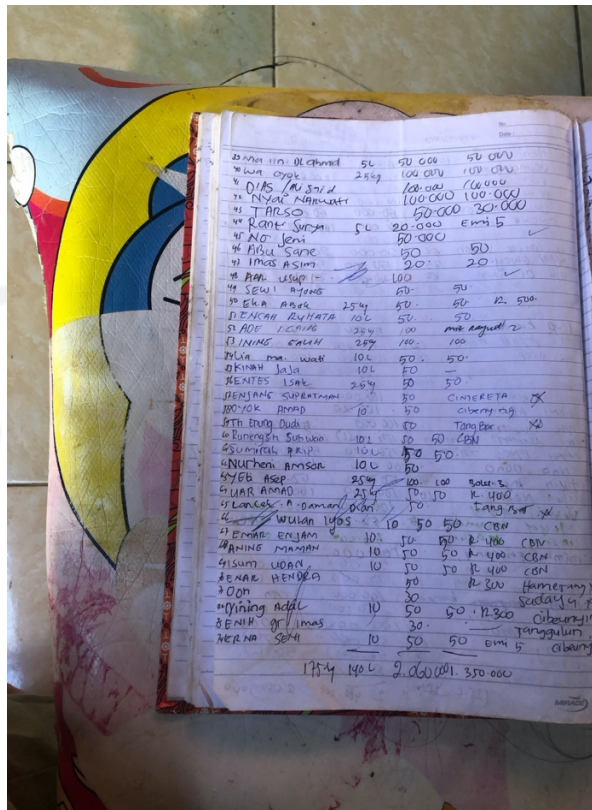 No.
Date:
39 Ma iin DL ahmad 5L 50 000 50 000
40 Wa oyok 25kg 100 000 100 000
41 DIAS / Mi Srid 100.000 100000
42 NYAI NARWATI 100.000 100.000
43 TARSO 50.000 30.000
44 Rant Surya 5L 20.000 Emi 5
45 No Jeni 50.000
46 ABU Sane 50 50
47 Imas Asim 20. 20
48 AAR USUP 100
49 SEWI AYONG 50. 50.
50 EKA ABOK 25kg 50. 50 R 500.
51 ENCAH RUHATA 10L 50. 50
52 ADE 25kg 100
53 INING GALIH 25kg 100. 100
54 Lia ma. Wati 10L 50. 50.
55 KINAH JAJA 10L 50 —
56 ENTES ISAK 25kg 50 50.
57 ENJANG SUPRATMAN 50 CIMERETA
58 OYOK AMAD 10. 50
59 Th Etung Dudi 50 Tang Bar
60 Runengsih Suhwan 10L 50 50 CBN
61 Sumirah ARIP 10L 50 50.
62 Nurheni Amsor 10L 50
63 YETI ASEP 25kg 100. 100
64 UAR AMAD 25kg 50 50 R 400
65 Lancek. A. Daman 50 Tang Bar
66 WULAN Iyos 10 50 50 CBN
67 EMAR ENJAM 10. 50 50 R 400 CBN
68 ANING MAMAN 10 50 50 R 400 CBN
69 Isum UDAN 10 50 50 R 400 CBN
70 ENAR HENDRA 50 R 300
71 OOH 30
72 Yining Adal 10 50 50. R 300
73 ENIH gr Imas 30. — Tanggulun
74 ERNA SEM 10 50 50 Emi 5
175kg 140L 2.060 000 1.350.000